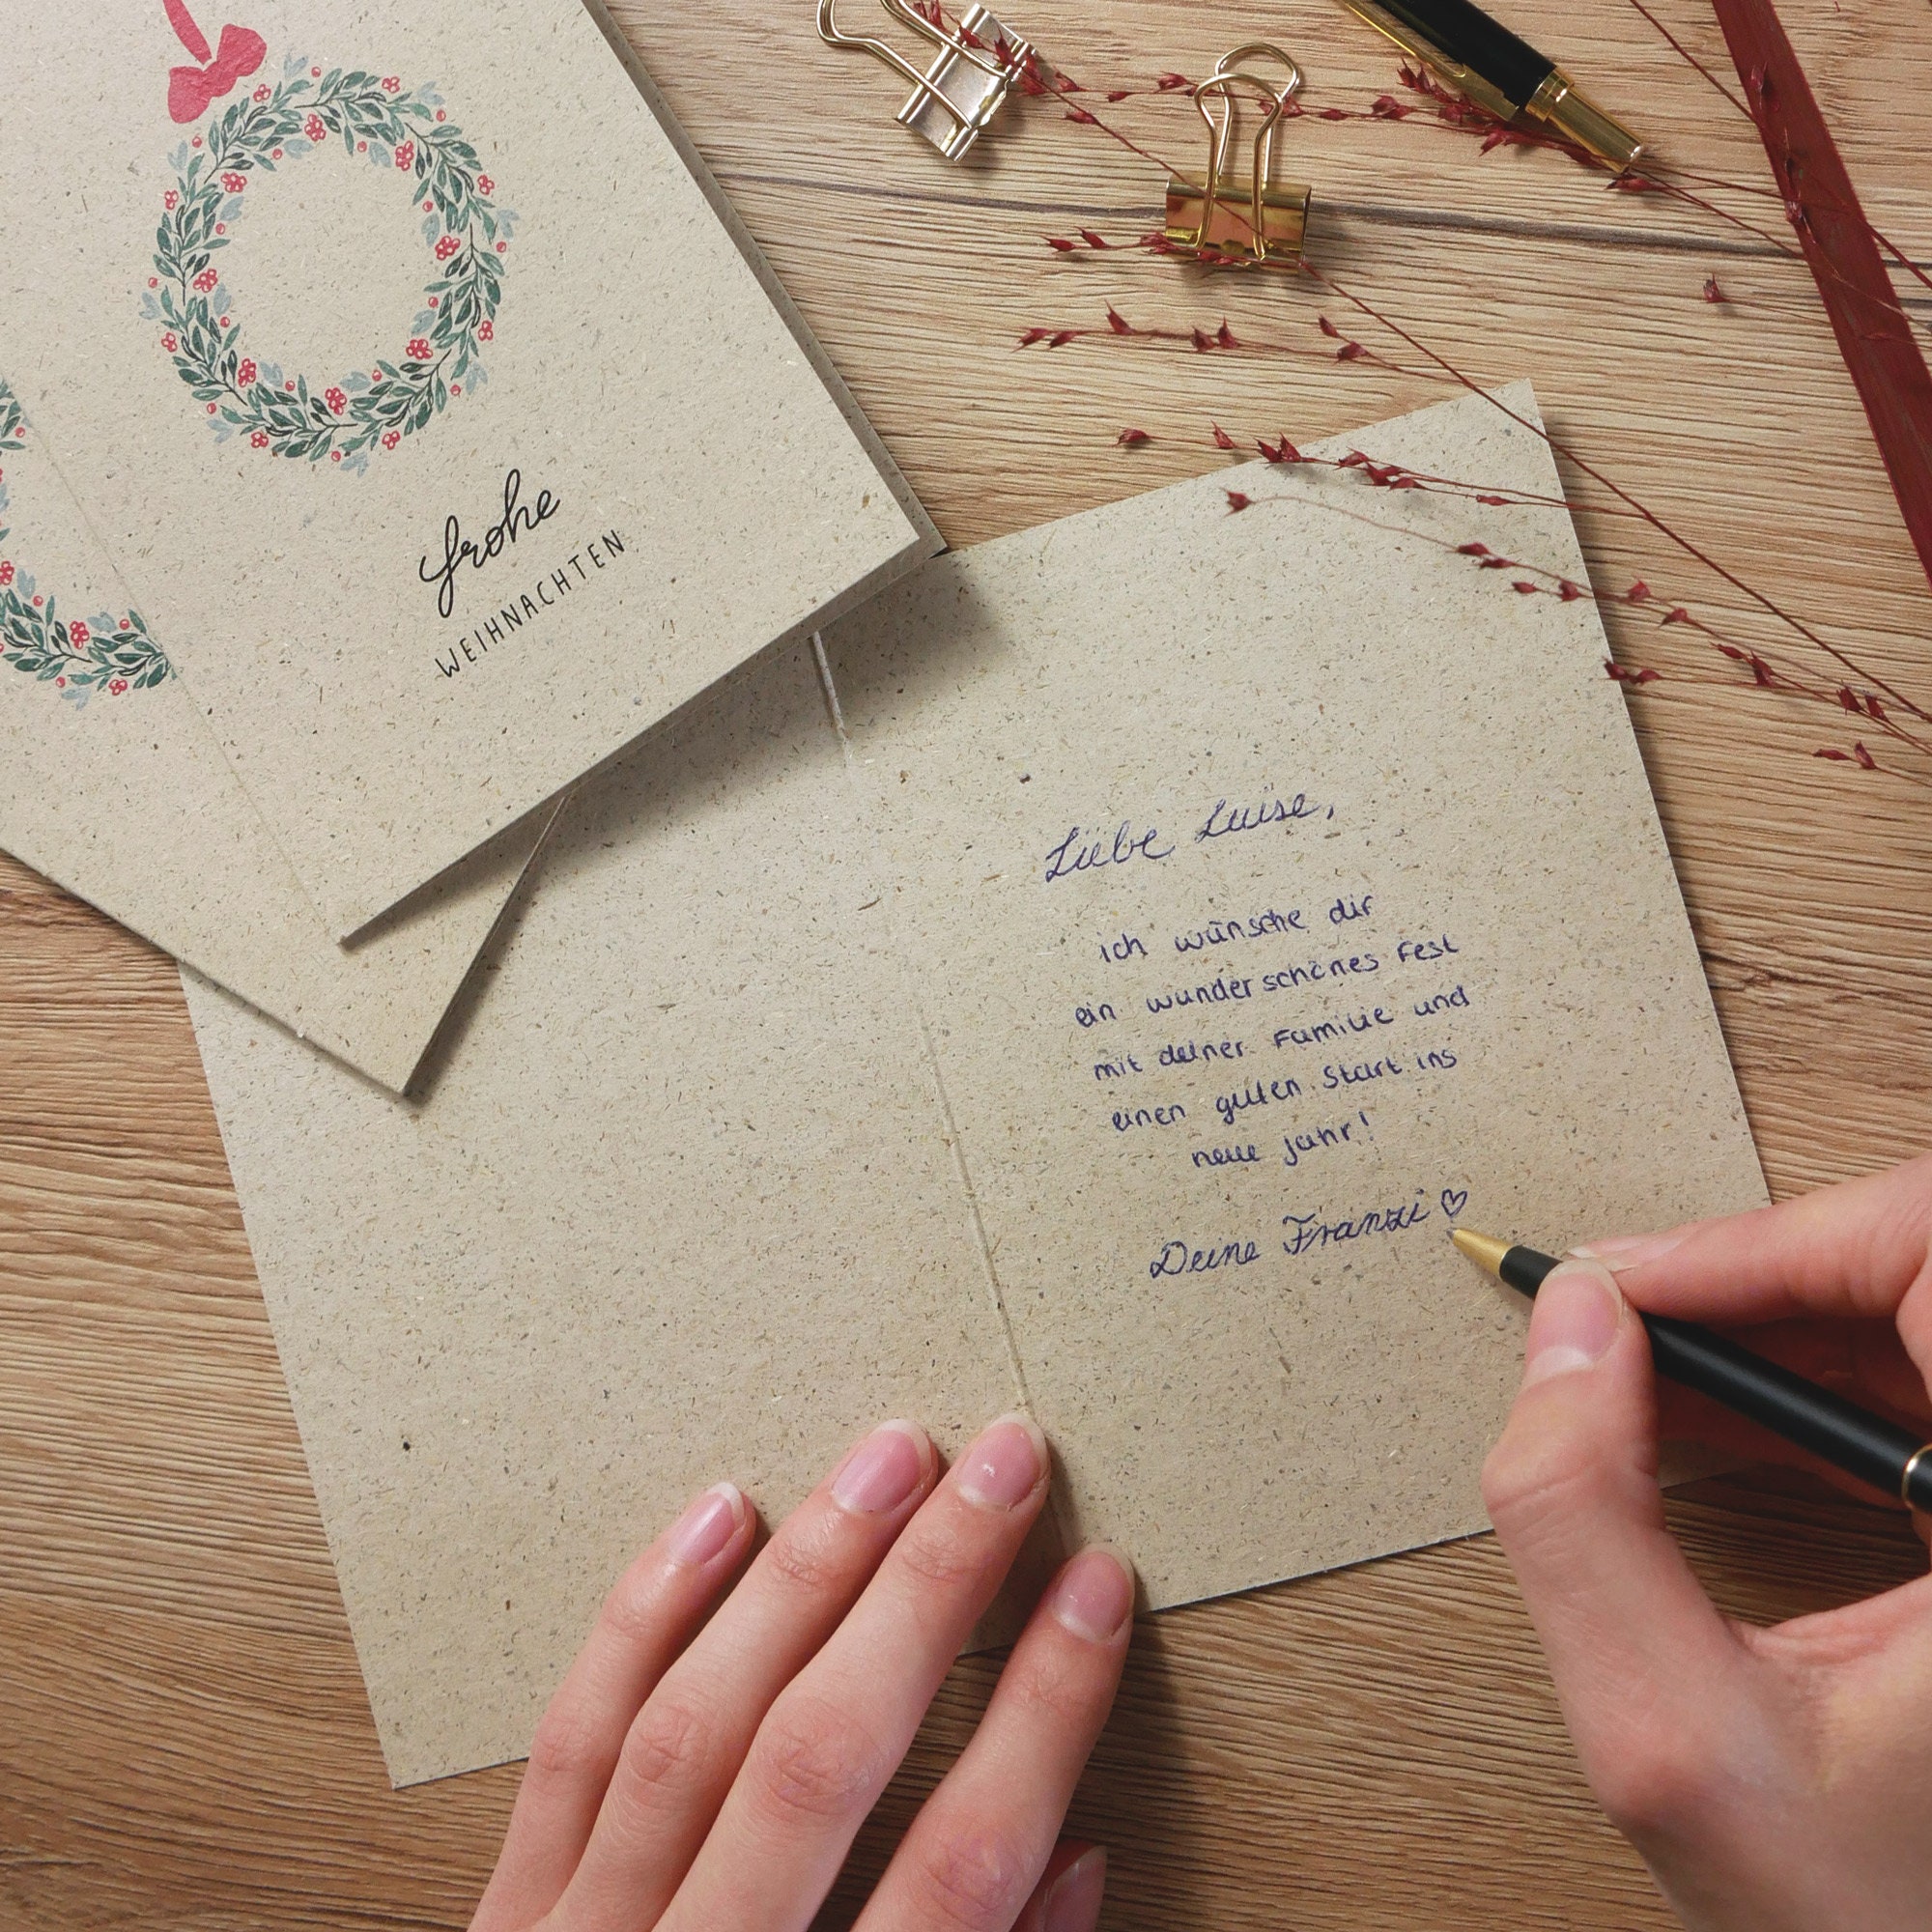 frohe
WEIHNACHTEN
Liebe Luise,
ich wünsche dir
ein wunderschönes Fest
mit deiner Familie und
einen guten Start ins
neue Jahr!
Deine Franzi ♡